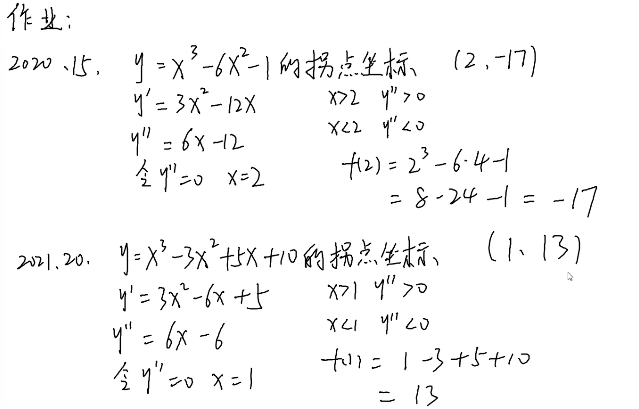 作业:
2020、15. y=x³-6x²-1的拐点坐标、 (2,-17)
y'=3x²-12x x>2 y''>0
y''=6x-12 x<2 y''<0
令y''=0 x=2 f(2)=2³-6·4-1
=8-24-1=-17
2021.20. y=x³-3x²+5x+10的拐点坐标、 (1、13)
y'=3x²-6x+5 x>1 y''>0
y''=6x-6 x<1 y''<0
令y''=0 x=1 f(1)=1-3+5+10
=13